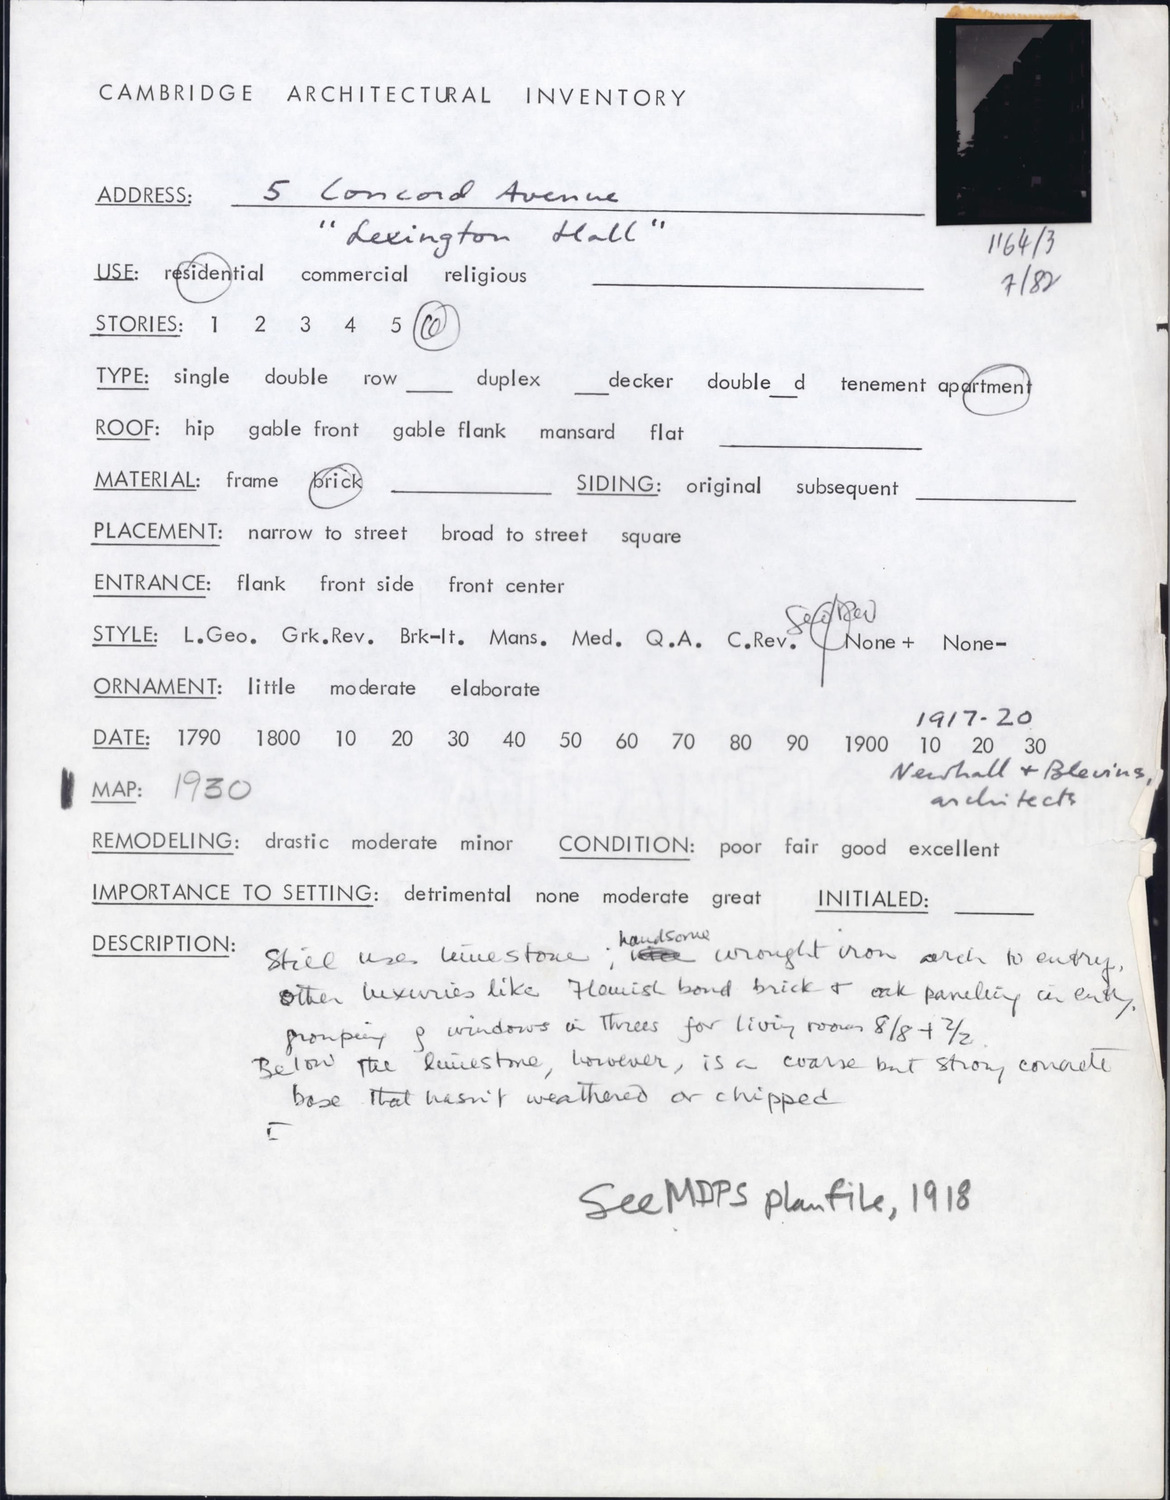 CAMBRIDGE ARCHITECTURAL INVENTORY
ADDRESS: 5 Concord Avenue
"Lexington Hall"
1164/3
7/82
USE: residential commercial religious
STORIES: 1 2 3 4 5 6
TYPE: single double row ____ duplex ___decker double__d tenement apartment
ROOF: hip gable front gable flank mansard flat
MATERIAL: frame brick SIDING: original subsequent
PLACEMENT: narrow to street broad to street square
ENTRANCE: flank front side front center
Geo Rev
STYLE: L.Geo. Grk.Rev. Brk-It. Mans. Med. Q.A. C.Rev. None + None-
ORNAMENT: little moderate elaborate
1917-20
DATE: 1790 1800 10 20 30 40 50 60 70 80 90 1900 10 20 30
Newhall + Blevins,
architects
MAP: 1930
REMODELING: drastic moderate minor CONDITION: poor fair good excellent
IMPORTANCE TO SETTING: detrimental none moderate great INITIALED:
DESCRIPTION: Still uses limestone; handsome wrought iron arch to entry,
other luxuries like Flemish bond brick + oak paneling in entry,
grouping of windows in threes for living rooms 8/8 + 2/2
Below the limestone, however, is a coarse but strong concrete
base that hasn't weathered or chipped
See MDPS plan file, 1918